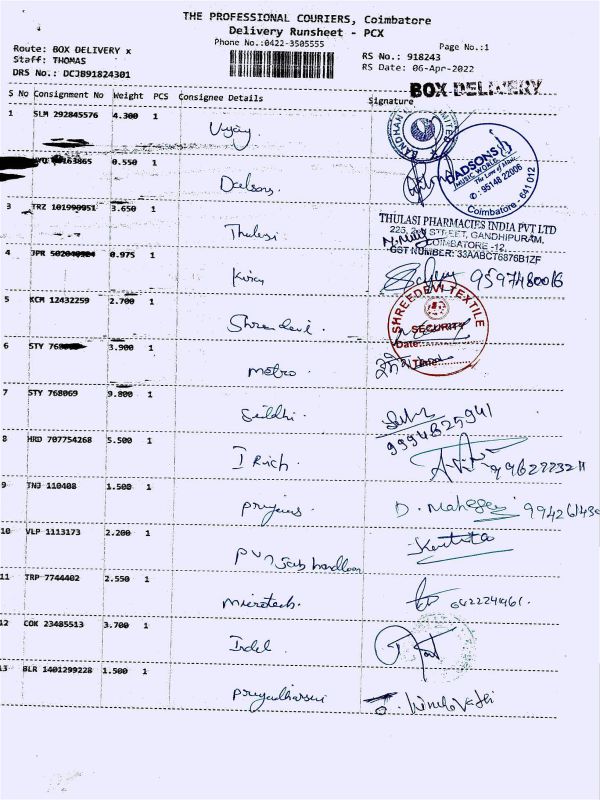 THE PROFESSIONAL COURIERS, Coimbatore
Delivery Runsheet - PCX
Phone No.:0422-3505555
Page No.:1
Route: BOX DELIVERY x
Staff: THOMAS
DRS No.: DCJB91824301
RS No.: 918243
RS Date: 06-Apr-2022
BOX DELIVERY
S No Consignment No Weight PCS Consignee Details Signature
1 SLM 292845576 4.300 1 Vijay
0.550 1 Dadsons
DADSONS
MUSIC WORLD
✆ : 95148 22006
Coimbatore - 641 012
3 TRZ 101990951 3.650 1 Thulasi
THULASI PHARMACIES INDIA PVT LTD
223, 2nd STREET, GANDHIPURAM,
COIMBATORE -12.
GST NUMBER: 33AABCT6876B1ZF
4 JPR 0.975 1 Kiran 9597480016
5 KCM 12432259 2.700 1 Shreedevi
SHREEDEVI TEXTILE
SECURITY
Date:
Time:
6 STY 3.900 1 metro
7 STY 768069 9.800 1 Siddhi
9994825941
8 HRD 707754268 5.500 1 I Rich
9 TNJ 110408 1.500 1 D. Mahes
10 VLP 1113173 2.200 1 Punjab handloom
11 TRP 7744402 2.550 1 Microtech
12 COK 23485513 3.700 1
13 BLR 1401299228 1.500 1 Priyadharsini